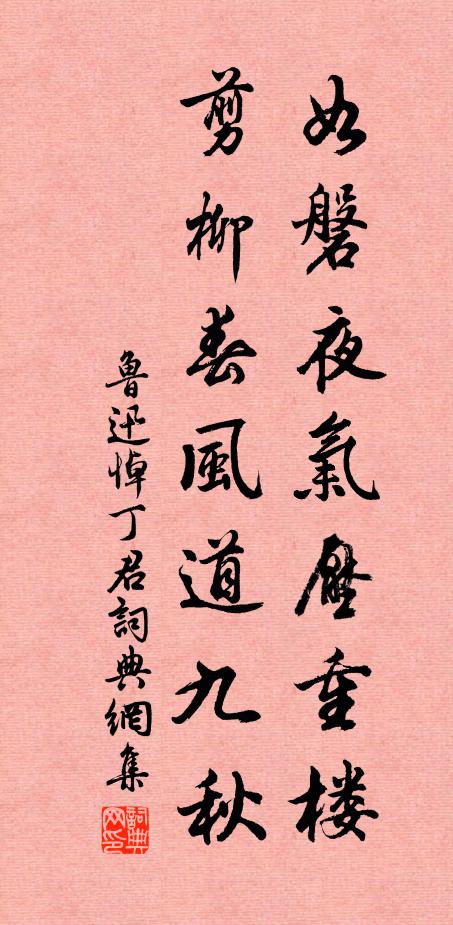 如磐夜氣壓重楼
剪柳春風道九秋
魯迅悼丁君詞典網集
詞典网印